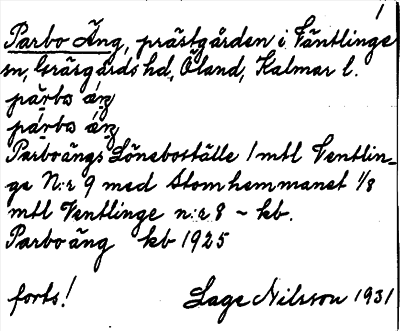 1
Parbo Äng, prästgården i Väntlinge
sn, Gräsgårds hd, Öland, Kalmar l.
pạ̈rbω áŋ
pạ́rbω áŋ
Parboängs Löneboställe 1 mtl Ventlin-
ge N:r 9 med Stomhemmanet 1/8
mtl Ventlinge n:r 8 ~ kb.
Parboäng kb 1925
forts! Lage Nilsson 1931